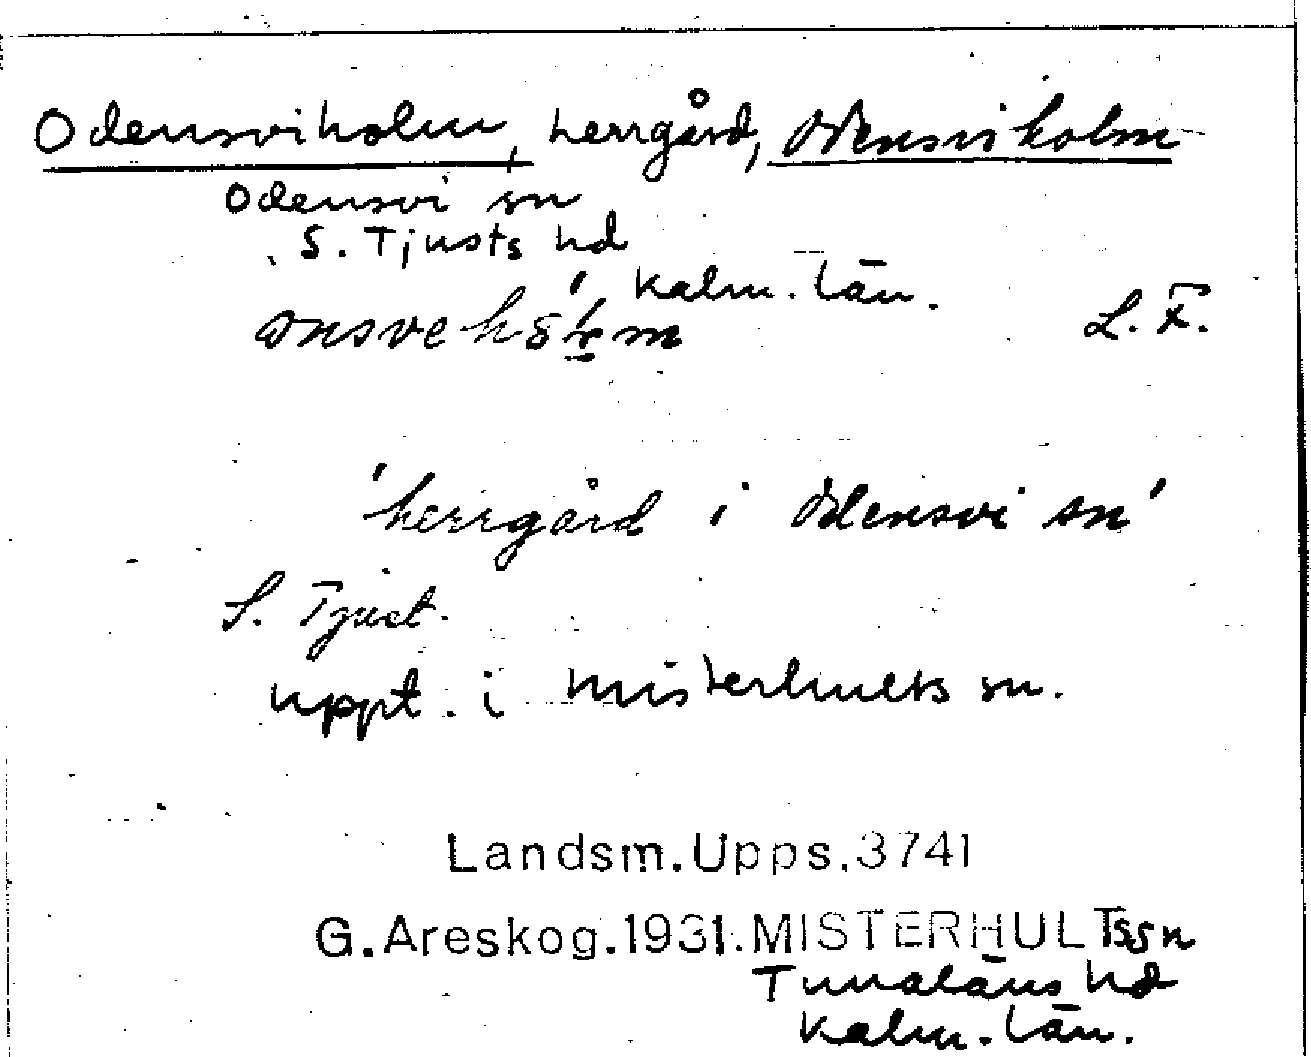 Odensviholm, herrgård, Odensviholm
Odensvi sn
S. Tjusts hd
Kalm. län.
L. F.
'herrgård i Odensvi sn'
S. Tjust.
uppt. i Misterhults sn.
Landsm.Upps.3741
G.Areskog.1931.MISTERHULTssn
Tunaläns hd
Kalm. län.